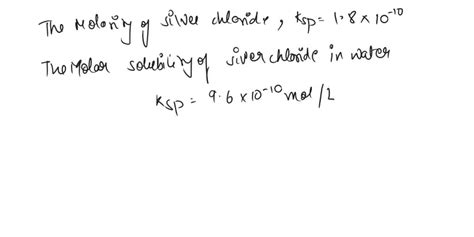 The Molarity of silver chloride, Ksp = 1.8 × 10⁻¹⁰
The Molar solubility of silver chloride in water
Ksp = 9.6 × 10⁻¹⁰ mol/L